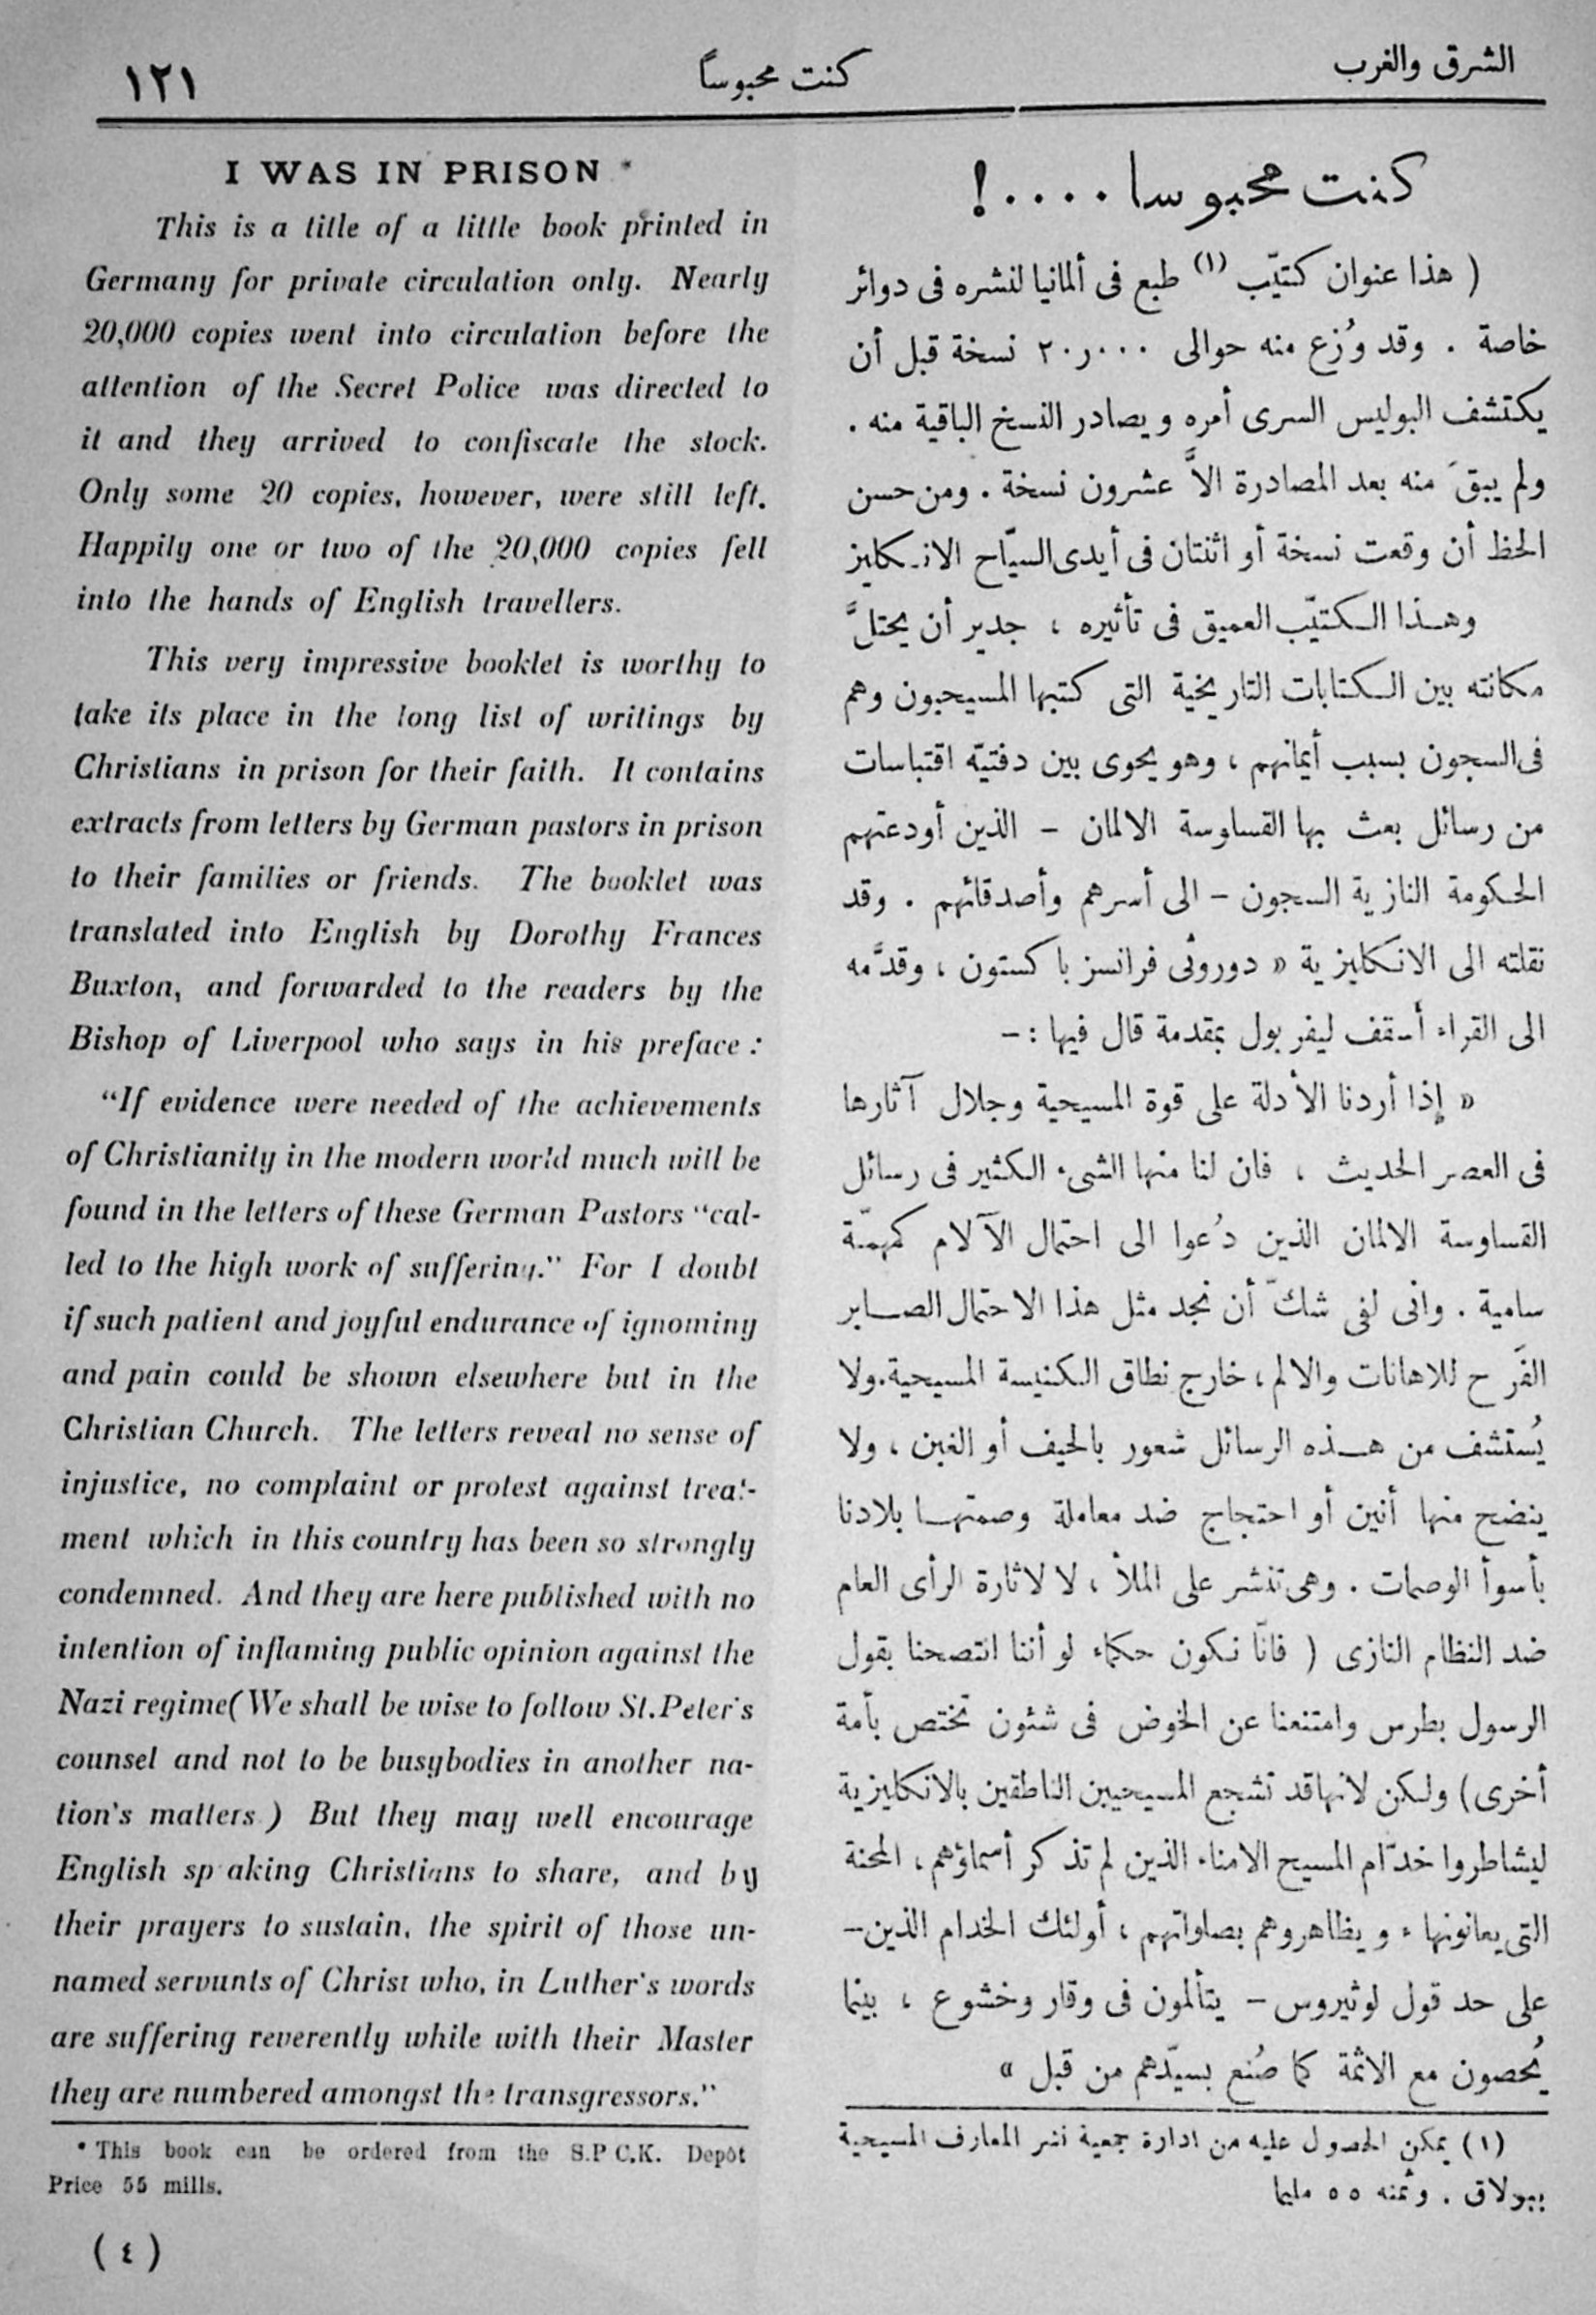 الشرق والغرب
كنت محبوساً
١٢١
I WAS IN PRISON *
This is a title of a little book printed in
Germany for private circulation only. Nearly
20,000 copies went into circulation before the
attention of the Secret Police was directed to
it and they arrived to confiscate the stock.
Only some 20 copies, however, were still left.
Happily one or two of the 20,000 copies fell
into the hands of English travellers.
This very impressive booklet is worthy to
take its place in the long list of writings by
Christians in prison for their faith. It contains
extracts from letters by German pastors in prison
to their families or friends. The booklet was
translated into English by Dorothy Frances
Buxton, and forwarded to the readers by the
Bishop of Liverpool who says in his preface :
"If evidence were needed of the achievements
of Christianity in the modern world much will be
found in the letters of these German Pastors "cal-
led to the high work of suffering." For I doubt
if such patient and joyful endurance of ignominy
and pain could be shown elsewhere but in the
Christian Church. The letters reveal no sense of
injustice, no complaint or protest against treat-
ment which in this country has been so strongly
condemned. And they are here published with no
intention of inflaming public opinion against the
Nazi regime (We shall be wise to follow St. Peter's
counsel and not to be busybodies in another na-
tion's matters.) But they may well encourage
English sp aking Christians to share, and by
their prayers to sustain, the spirit of those un-
named servants of Christ who, in Luther's words
are suffering reverently while with their Master
they are numbered amongst the transgressors."
* This book can be ordered from the S.P.C.K. Depôt
Price 55 mills.
(٤)
كنت محبوسا ....!
( هذا عنوان كتيّب (١) طبع فى ألمانيا لنشره فى دوائر
خاصة . وقد وُزع منه حوالى ٢٠ر٠٠٠ نسخة قبل أن
يكتشف البوليس السرى أمره ويصادر النسخ الباقية منه .
ولم يبقَ منه بعد المصادرة الاَّ عشرون نسخة . ومن حسن
الحظ أن وقعت نسخة أو اثنتان فى أيدى السيّاح الانكليز
وهذا الكتيّب العميق فى تأثيره ، جدير أن يحتلَّ
مكانته بين الكتابات التاريخية التى كتبها المسيحيون وهم
فى السجون بسبب أيمانهم ، وهو يحوى بين دفتيّه اقتباسات
من رسائل بعث بها القساوسة الالمان – الذين أودعتهم
الحكومة النازية السجون – الى أسرهم وأصدقائهم . وقد
نقلته الى الانكليزية « دوروثى فرانسز باكستون ، وقدَّمه
الى القراء أسقف ليفربول بمقدمة قال فيها : –
« إذا أردنا الأدلة على قوة المسيحية وجلال آثارها
فى العصر الحديث ، فان لنا منها الشىء الكثير فى رسائل
القساوسة الالمان الذين دُعوا الى احتمال الآلام كمهمّة
سامية . وانى لفى شكّ أن نجد مثل هذا الاحتمال الصابر
الفَرح للاهانات والالم ، خارج نطاق الكنيسة المسيحية . ولا
يُستشف من هذه الرسائل شعور بالحيف أو الغبن ، ولا
ينضح منها أنين أو احتجاج ضد معاملة وصمتها بلادنا
بأسوأ الوصمات . وهى تنشر على الملأ ، لا لاثارة الرأى العام
ضد النظام النازى ( فانّا نكون حكماء لو أننا انتصحنا بقول
الرسول بطرس وامتنعنا عن الخوض فى شئون تختص بأمة
أخرى ) ولكن لانها قد تشجع المسيحيين الناطقين بالانكليزية
ليشاطروا خدّام المسيح الامناء الذين لم تذكر أسماؤهم ، المحنة
التى يعانونها ، ويظاهروهم بصلواتهم ، أولئك الخدام الذين –
على حد قول لوثيروس – يتألمون فى وقار وخشوع ، بينما
يُحصون مع الاثمة كما صُنع بسيّدهم من قبل »
(١) يمكن الحصول عليه من ادارة جمعية نشر المعارف المسيحية
ببولاق . وثمنه ٥٥ مليما